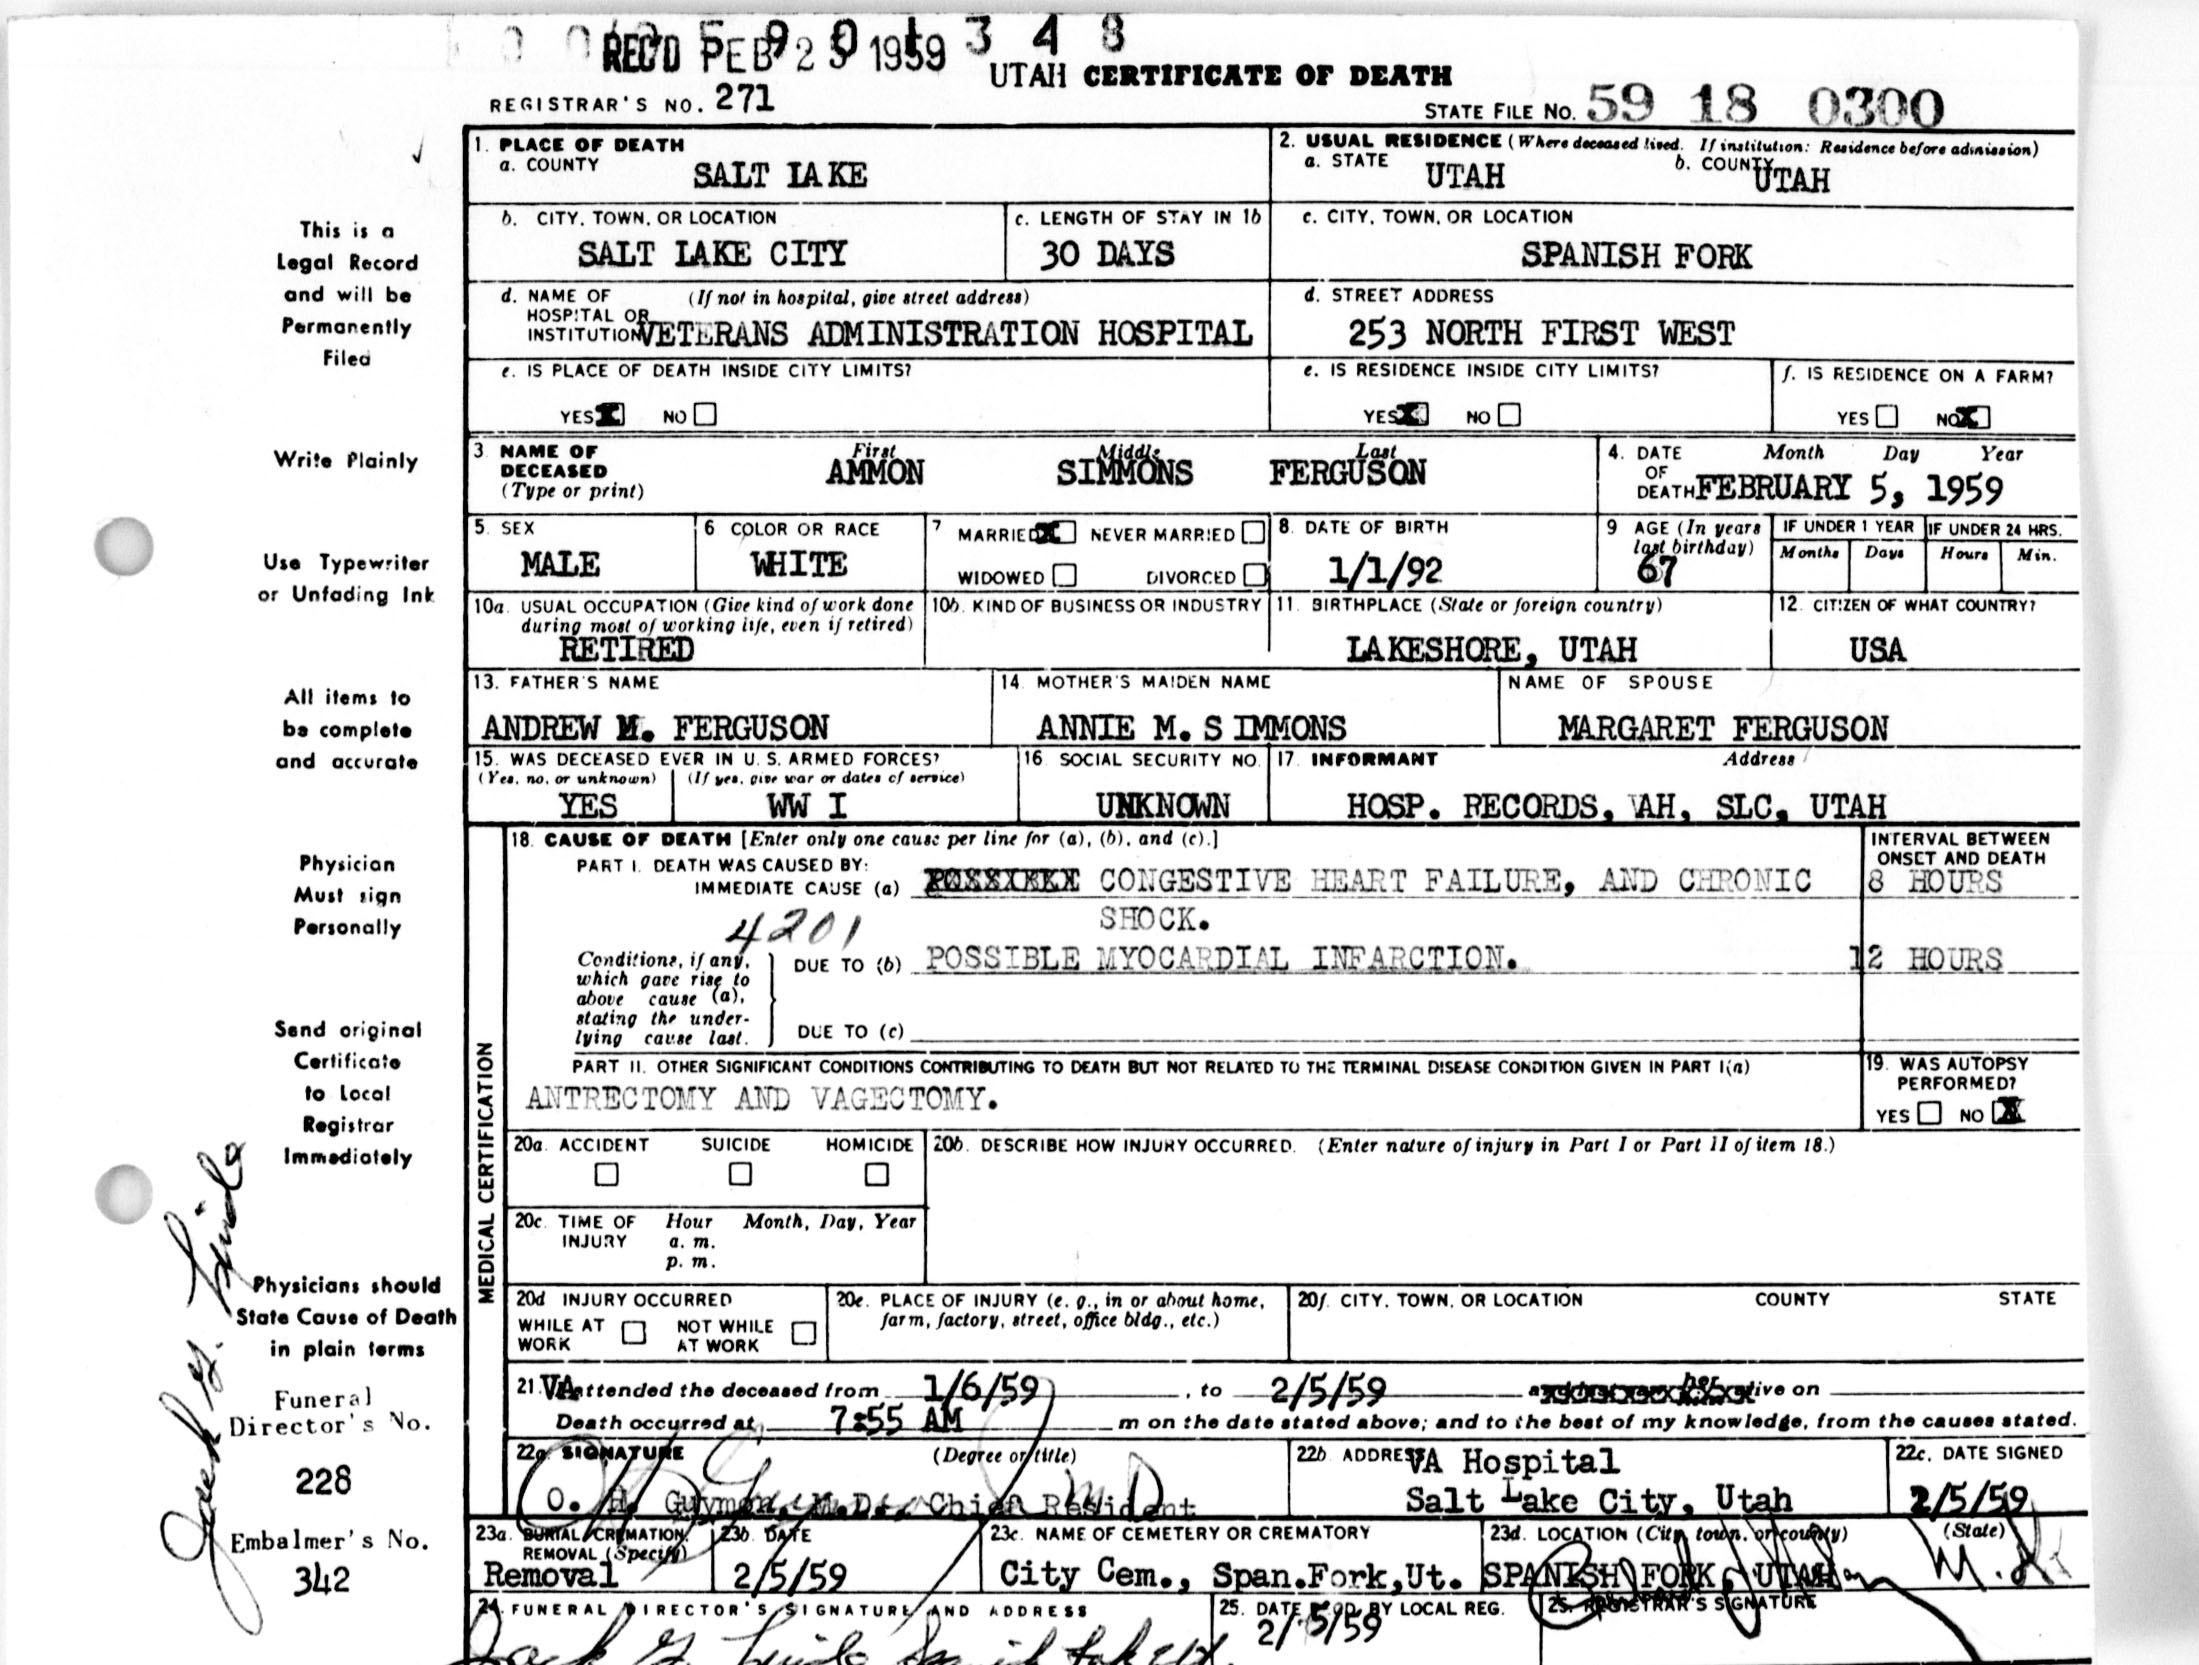 REC'D FEB 25 1959
3 4 8
UTAH CERTIFICATE OF DEATH
REGISTRAR'S NO. 271
STATE FILE NO. 59 18 0300
1. PLACE OF DEATH
a. COUNTY
SALT LAKE
2. USUAL RESIDENCE (Where deceased lived. If institution: Residence before admission)
a. STATE UTAH b. COUNTY UTAH
b. CITY, TOWN, OR LOCATION
SALT LAKE CITY
c. LENGTH OF STAY IN 1b
30 DAYS
c. CITY, TOWN, OR LOCATION
SPANISH FORK
d. NAME OF HOSPITAL OR INSTITUTION (If not in hospital, give street address)
VETERANS ADMINISTRATION HOSPITAL
d. STREET ADDRESS
253 NORTH FIRST WEST
e. IS PLACE OF DEATH INSIDE CITY LIMITS?
YES X NO
e. IS RESIDENCE INSIDE CITY LIMITS?
YES X NO
f. IS RESIDENCE ON A FARM?
YES NO X
3. NAME OF DECEASED (Type or print)
First Middle Last
AMMON SIMMONS FERGUSON
4. DATE OF DEATH
Month Day Year
FEBRUARY 5, 1959
5. SEX
MALE
6 COLOR OR RACE
WHITE
7 MARRIED X NEVER MARRIED
WIDOWED DIVORCED
8. DATE OF BIRTH
1/1/92
9 AGE (In years last birthday)
67
IF UNDER 1 YEAR
Months Days
IF UNDER 24 HRS.
Hours Min.
10a. USUAL OCCUPATION (Give kind of work done during most of working life, even if retired)
RETIRED
10b. KIND OF BUSINESS OR INDUSTRY
11. BIRTHPLACE (State or foreign country)
LAKESHORE, UTAH
12. CITIZEN OF WHAT COUNTRY?
USA
13. FATHER'S NAME
ANDREW M. FERGUSON
14. MOTHER'S MAIDEN NAME
ANNIE M. SIMMONS
NAME OF SPOUSE
MARGARET FERGUSON
15. WAS DECEASED EVER IN U. S. ARMED FORCES?
(Yes, no, or unknown) (If yes, give war or dates of service)
YES WW I
16. SOCIAL SECURITY NO.
UNKNOWN
17. INFORMANT Address
HOSP. RECORDS, VAH, SLC, UTAH
MEDICAL CERTIFICATION
18. CAUSE OF DEATH [Enter only one cause per line for (a), (b), and (c).]
PART I. DEATH WAS CAUSED BY:
IMMEDIATE CAUSE (a) CONGESTIVE HEART FAILURE, AND CHRONIC
SHOCK.
INTERVAL BETWEEN ONSET AND DEATH
8 HOURS
4201
Conditions, if any, which gave rise to above cause (a), stating the underlying cause last.
DUE TO (b) POSSIBLE MYOCARDIAL INFARCTION. 12 HOURS
DUE TO (c)
PART II. OTHER SIGNIFICANT CONDITIONS CONTRIBUTING TO DEATH BUT NOT RELATED TO THE TERMINAL DISEASE CONDITION GIVEN IN PART I(a)
ANTRECTOMY AND VAGECTOMY.
19. WAS AUTOPSY PERFORMED?
YES NO X
20a. ACCIDENT SUICIDE HOMICIDE
20b. DESCRIBE HOW INJURY OCCURRED. (Enter nature of injury in Part I or Part II of item 18.)
20c. TIME OF INJURY
Hour Month, Day, Year
a. m.
p. m.
20d INJURY OCCURRED
WHILE AT WORK NOT WHILE AT WORK
20e. PLACE OF INJURY (e. g., in or about home, farm, factory, street, office bldg., etc.)
20f. CITY, TOWN, OR LOCATION COUNTY STATE
21. VA attended the deceased from 1/6/59, to 2/5/59 her alive on
Death occurred at 7:55 AM m on the date stated above; and to the best of my knowledge, from the causes stated.
22a. SIGNATURE (Degree or title)
O. H. Guymon, M.D., Chief Resident
22b. ADDRESS VA Hospital
Salt Lake City, Utah
22c. DATE SIGNED
2/5/59
23a. BURIAL, CREMATION, REMOVAL (Specify)
Removal
23b. DATE
2/5/59
23c. NAME OF CEMETERY OR CREMATORY
City Cem., Span.Fork,Ut.
23d. LOCATION (City, town, or county) (State)
SPANISH FORK, UTAH
24. FUNERAL DIRECTOR'S SIGNATURE AND ADDRESS
25. DATE REC'D. BY LOCAL REG.
2/5/59
REGISTRAR'S SIGNATURE
This is a
Legal Record
and will be
Permanently
Filed
Write Plainly
Use Typewriter
or Unfading Ink
All items to
be complete
and accurate
Physician
Must sign
Personally
Send original
Certificate
to Local
Registrar
Immediately
Physicians should
State Cause of Death
in plain terms
Funeral
Director's No.
228
Embalmer's No.
342